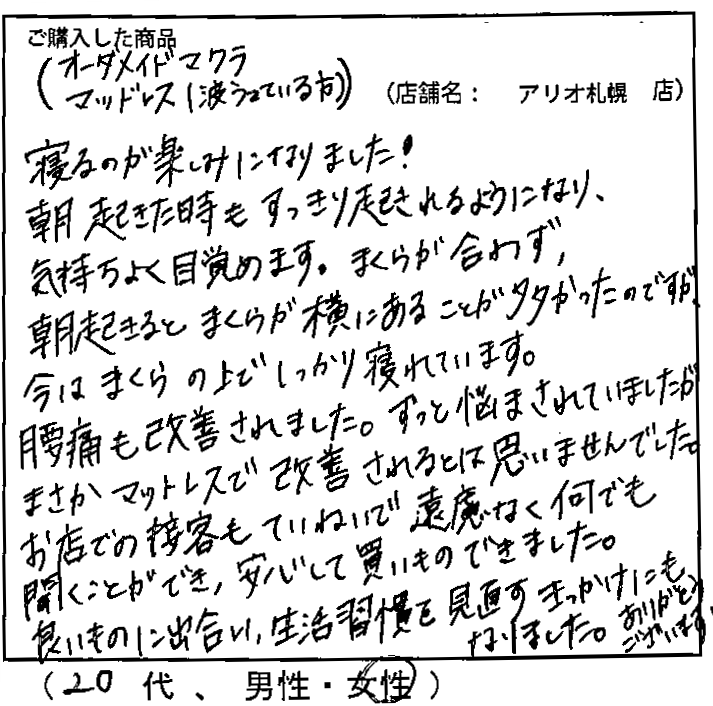 ご購入した商品
(オーダメイドマクラ
マッドレス(波うっている方)) (店舗名： アリオ札幌 店)
寝るのが楽しみになりました!
朝起きた時もすっきり起きれるようになり、
気持ちよく目覚めます。まくらが合わず,
朝起きるとまくらが横にあることが多かったのですが、
今はまくらの上でしっかり寝れています。
腰痛も改善されました。ずっと悩まされていましたが
まさかマットレスで改善されるとは思いませんでした。
お店での接客もていねいで遠慮なく何でも
聞くことができ,安心して買いものできました。
良いものに出合い,生活習慣を見直すきっかけにも
なりました。ありがとう
ございます
(20代、男性・女性)